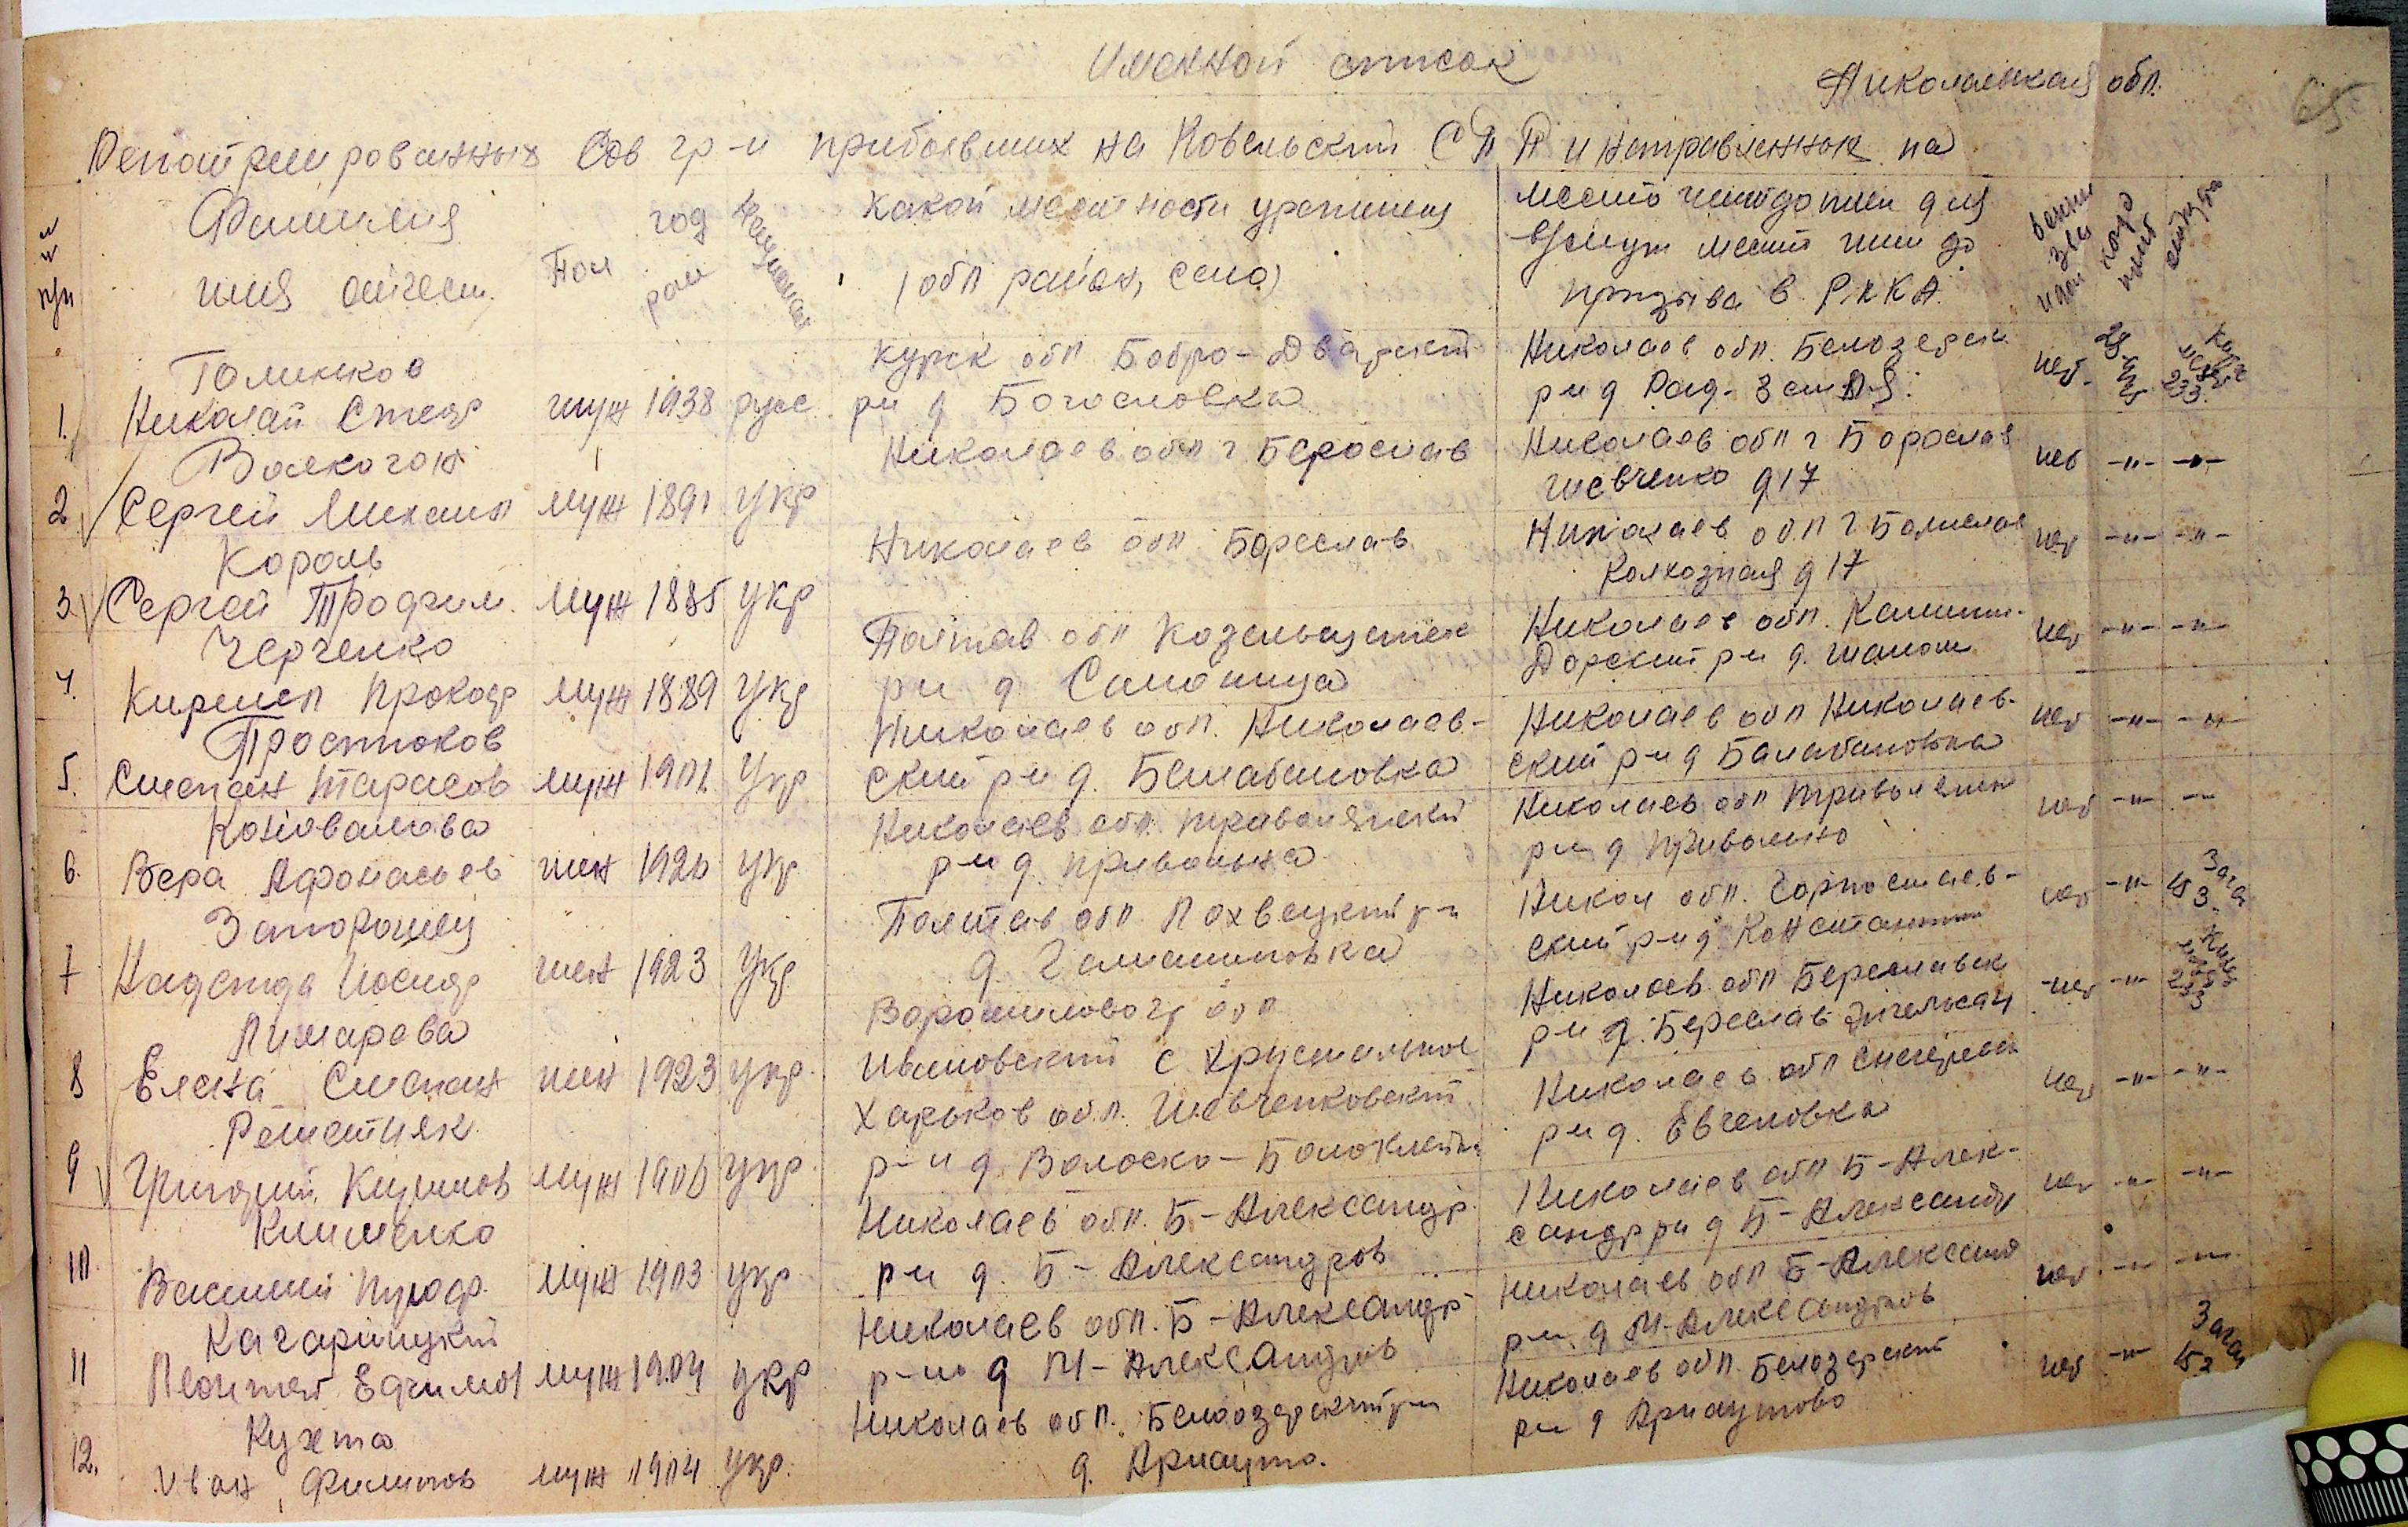 Именной список
Николаевская обл.
65
Репатриированных Сов гр-н прибывших на Ковельский СПП и направленных на
Фамилия имя отчест.
Пол
год рож
Национал
какой местности уроженец (обл район, село)
место жительства до призыва в РККА
1. Николай Стеф муж 1938 русс
Курск обл Бобро-Дварский
р-н д Богословка
Николаев обл. Белозерск
р-н д Рад-Земля
нет
233
Волкогон
2 Сергей Михаил муж 1891 укр
Николаев обл г Береслав
Николаев обл г Бореслав
Шевченко д 17
нет -"- -"-
Король
3. Сергей Трофим. муж 1885 укр
Николаев обл Береслав
Николаев обл г Берислав
Колхозная д 17
нет -"- -"-
Черченко
4. Кирилл Прокоф муж 1889 укр
Полтав обл Козельщенск
р-н д
Николаев обл. Калинин-
Дорский р-н д.
нет -"- -"-
Простоков
5. Степан Тарасов муж 1901 укр
Николаев обл. Николаев-
ский р-н д. Балабановка
Николаев обл Николаев-
ский р-н д Балабановка
нет -"- -"-
Коновалова
6. Вера Афонасьев жен 1926 укр
Николаев обл.
р-н д привольна
Николаев обл
р-н д привольно
нет -"- -"-
Запорожец
7 Надежда Иосиф жен 1923 укр
Полтав обл Лохвецкий р-н
д
Никол обл. Горностаев-
ский р-н д Константин
нет -"-
153
Лимарева
8 Елена Степан жен 1923 укр.
Ворошиловогр обл
Ивановский с Хрустальное
Николаев обл Береславск
р-н д. Береслав
нет -"-
233
Решетняк
9 Григорий муж 1906 укр.
Харьков обл. Шевченковский
р-н д. Волоско-Балоклейка
Николаев обл Снегирев
р-н д. Евгеновка
нет -"- -"-
Клименко
10. Василий муж 1903 укр
Николаев обл. Б-Александр
р-н д. Б-Александров
Николаев обл Б-Алек-
сандр р-н д Б-Александр
нет -"- -"-
Кагарлицкий
11 Леонтий Ефимов муж 1904 укр
Николаев обл. Б-Александр
р-н д М-Александров
Николаев обл Б-Александ
р-н д М-Александров
нет -"- -"-
Кухта
12. Иван Филипов муж 1904 укр.
Николаев обл. Белоозерский р-н
д. Арнауто.
Николаев обл. Белозерский
р-н д Арнаутово
нет -"-
153